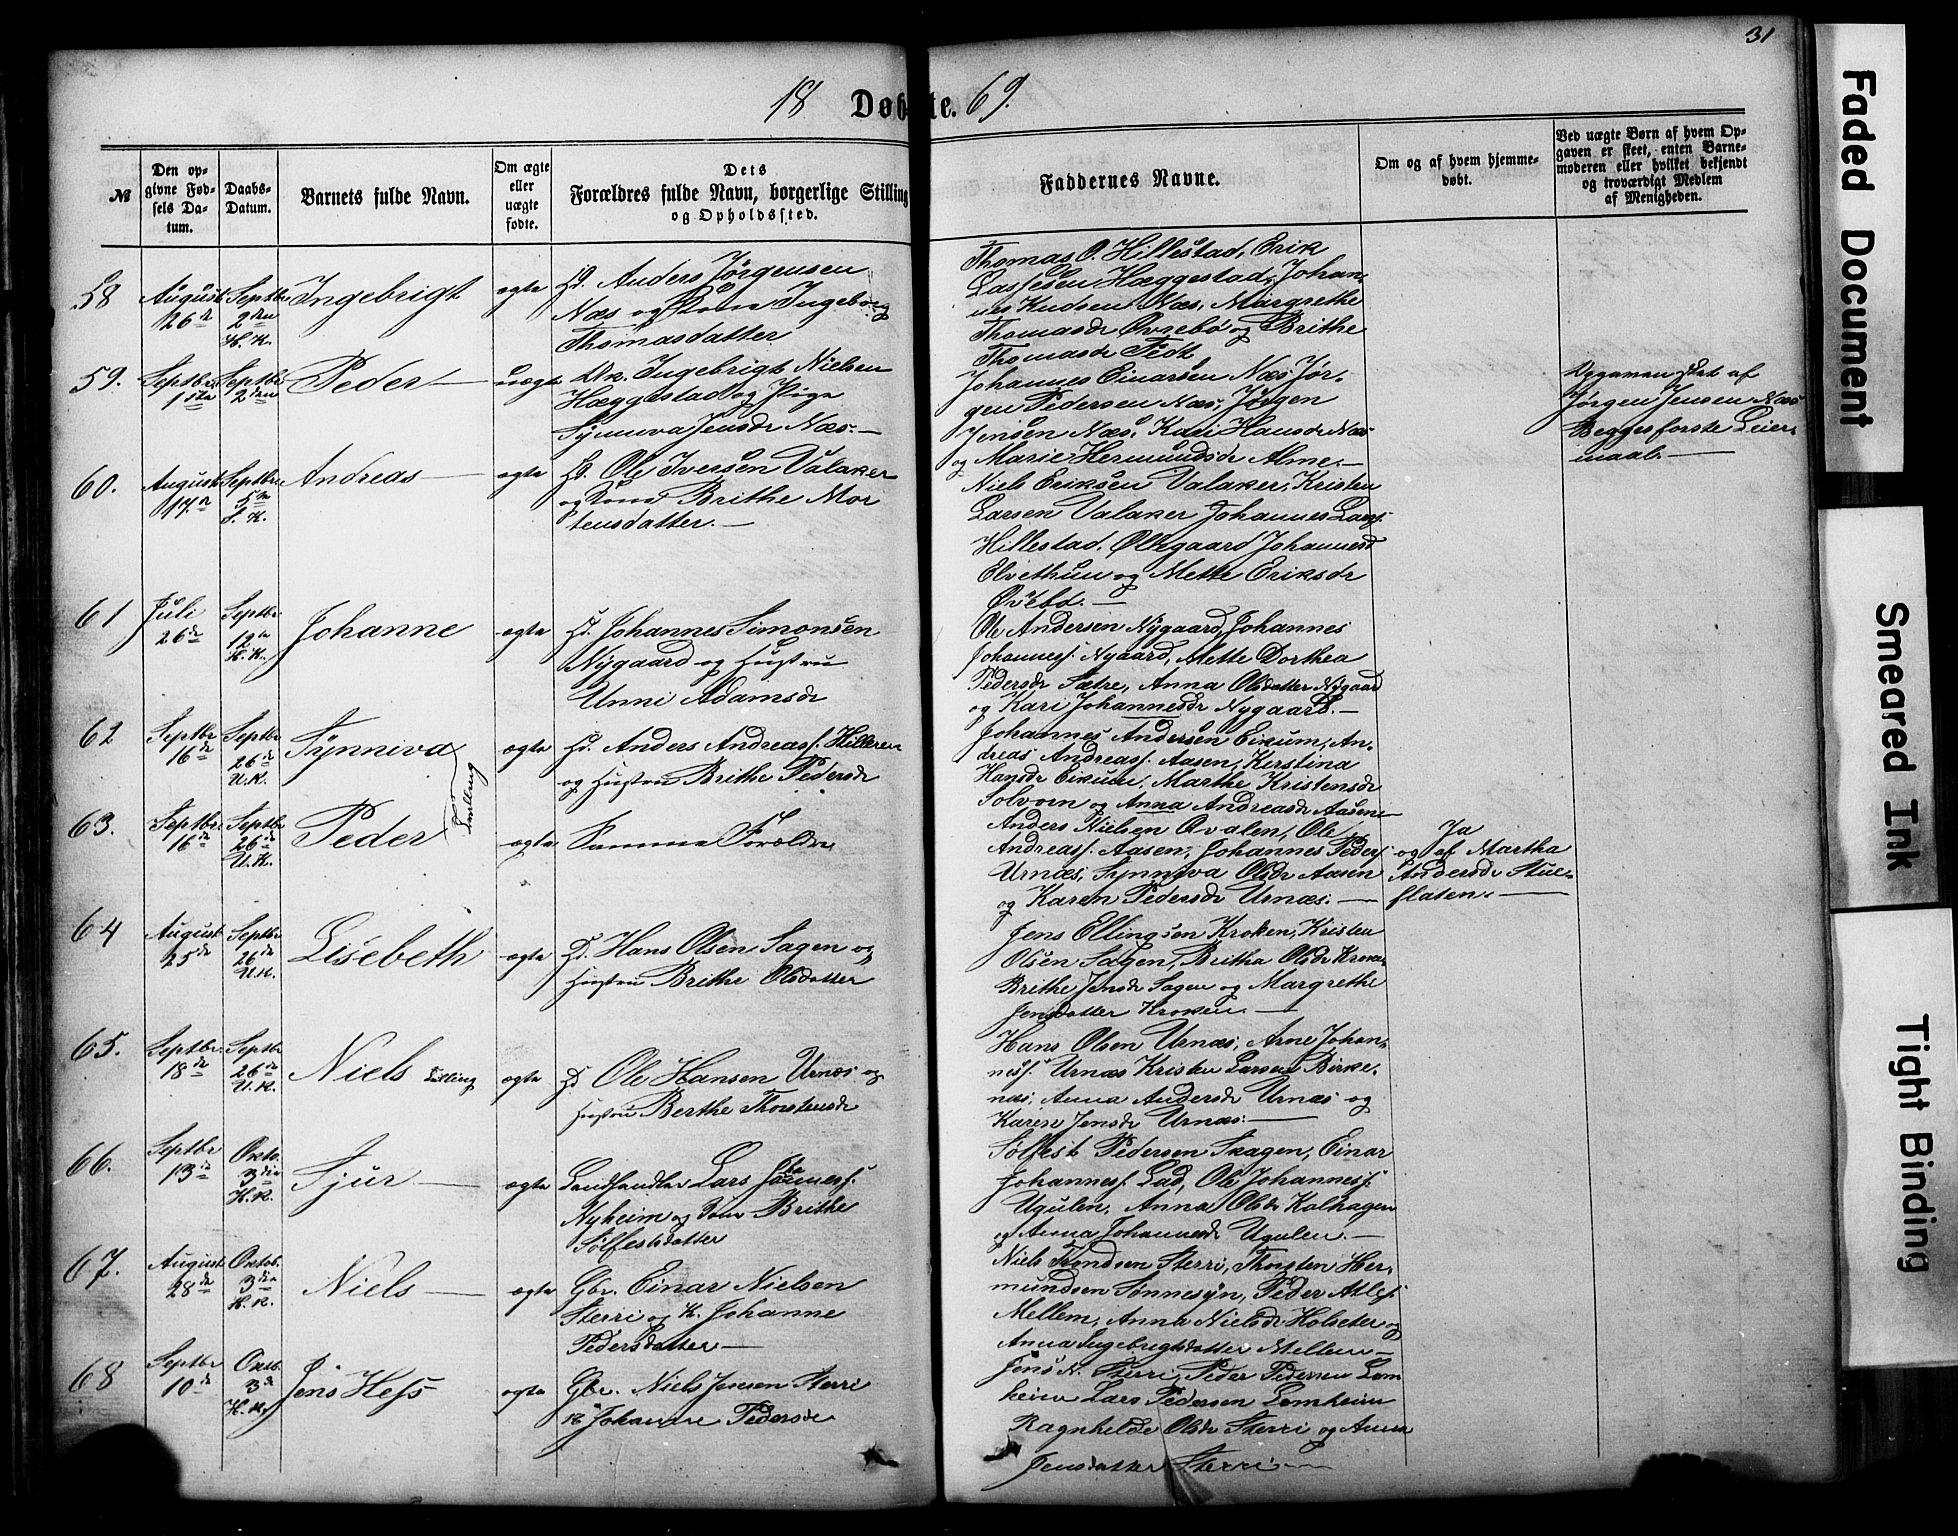 31
18 Døbte. 69.
№
Den opgivne Fødsels Datum.
Daabs-Datum.
Barnets fulde Navn.
Om ægte eller uægte fødte.
Dets Forældres fulde Navn, borgerlige Stilling og Opholdssted.
Faddernes Navne.
Om og af hvem hjemmedøbt.
Ved uægte Børn af hvem Opgaven er skeet, enten Barnemoderen eller hvilket bekjendt og troværdigt Medlem af Menigheden.
58 August 26de Septbr 2den H. K. Ingebrigt ægte
Anders Jørgensen
Næs og Kone Ingeborg
Thomasdatter
Thomas O. Hillestad, Erik
Lassesen Hæggestad, Johan-
nes Knudsen Næs, Margrethe
Thomasdr Øvrebø og Brithe
Thomasdr Fedt
59. Septbr 1ste Septbr 2den Peder — uægte
Ingebrigt Nielsen
Hæggestad og Pige
Synneva Jensdr Næs. —
Johannes Einarsen Næs, Jør-
gen Pedersen Næs, Jørgen
Jensen Næs, Kari Hansdr Næs
og Marie Hermundsdr Alme. —
Opgaven skeet af
Jørgen Jensen Næs
Begges første Leier-
maal. —
60. August 17de Septbr 5te S. K. Andreas — ægte
Ole Iversen Valaker
og Kone Brithe Mor
tensdatter. —
Niels Eriksen Valaker, Kristen
Larsen Valaker Johannes Lars.
Hillestad, Ølegaard Johannesd
Elvethun og Mette Eriksdr
Øvrebø. —
61 Juli 26de Septbr 12te H. K. Johanne ægte
Johannes Simonsen
Nygaard og Hustru
Unni Adamsdr
Ole Andersen Nygaard, Johannes
Johanness. Nygaard, Mette Dorthea
Pedersdr Sætre, Anna Olsdatter Nygaard
og Kari Johannesdr Nygaard. —
62 Septbr 16de Septbr 26de U. K. Synniva ægte
Anders Andreass. Hilleren
og Hustru Brithe Pedersdr
Johannes Andersen Eikum, An-
dreas Andreass. Aasen, Kerstina
Hansdr Eikum, Marthe Kristensdr
Solvorn og Anna Andreasdr Aasen
Tvilling
63. Septbr 16de Septbr 26de U. K. Peder ægte
Samme Forældre
Anders Nielsen Kvalen, Ole
Andreass. Aasen, Johannes Peders.
Urnæs, Synniva Olsdr Aasen
og Karen Pedersdr Urnæs. —
Ja
og af Martha
Andersdr Stue-
flaten. —
64 August 25de Septbr 26de U. K. Lisebeth ægte
Hans Olsen Sagen og
Hustru Brithe Olsdatter
Jens Ellingsen Kroken, Kristen
Olsen Sagen, Britha Olsdr Kroken
Brithe Jensdr Sagen og Margrethe
Jensdatter Kroken. —
65. Septbr 18de Septbr 26de U. K. Niels Tvilling ægte
Ole Hansen Urnæs og
Hustru Berthe Thorstensdr
Hans Olsen Urnæs, Arne Johan-
ness. Urnæs Kristen Larsen Birke-
næs, Anna Andersdr Urnæs og
Karen Jensdr Urnæs. —
66. Septbr 13de Oktb. 3die H. K. Sjur — ægte
Landhandler Lars Johanness.
Nyheim og Kone Brithe
Sølfestsdatter
Sølfest Pedersen Skagen, Einar
Johanness. Lad, Ole Johanness.
Ugulen, Anna Olsdr Kalhagen
og Anna Johannesdr Ugulen. —
67. August 28de Oktob. 3die H. K. Niels — ægte
Gbr. Einar Nielsen
Sterri og K. Johanne
Pedersdatter —
Niels Trondsen Sterri, Thorsten Her-
mundsen Sønnesyn, Peder Atles.
Mellem, Anna Nielsdr Holseter og
Anna Ingebrigtsdatter Mellem —
68 Septbr 10de Oktb. 3de H. K. Jens Hess ægte
Gbr. Niels Jensen Sterri
K Johanne Pedersdr
Jens N. Sterri, Peder Pedersen Lom
heim Lars Pedersen Lomheim
Ragnhilde Olsdr Sterri og Anna
Jensdatter Sterri —
Faded Document
Smeared Ink
Tight Binding